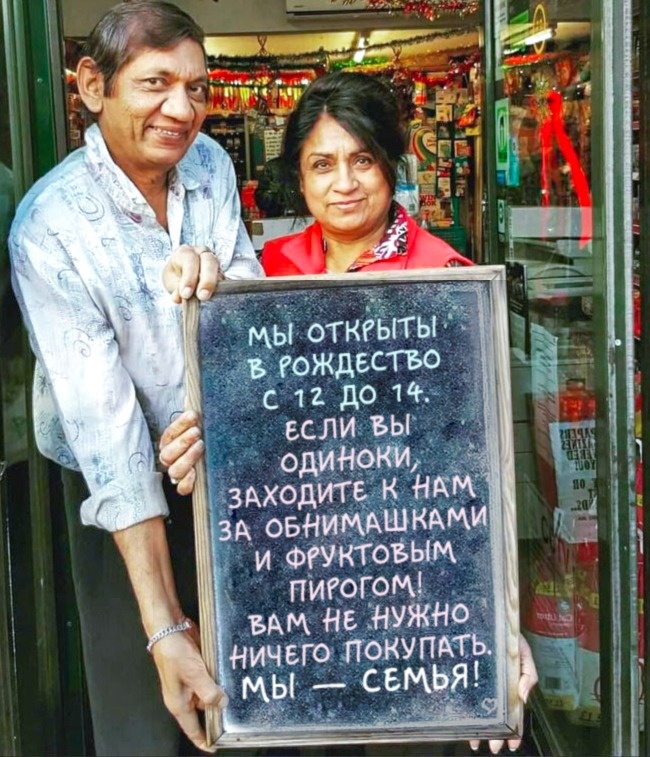 МЫ ОТКРЫТЫ
В РОЖДЕСТВО
С 12 ДО 14.
ЕСЛИ ВЫ
ОДИНОКИ,
ЗАХОДИТЕ К НАМ
ЗА ОБНИМАШКАМИ
И ФРУКТОВЫМ
ПИРОГОМ!
ВАМ НЕ НУЖНО
НИЧЕГО ПОКУПАТЬ.
МЫ — СЕМЬЯ!